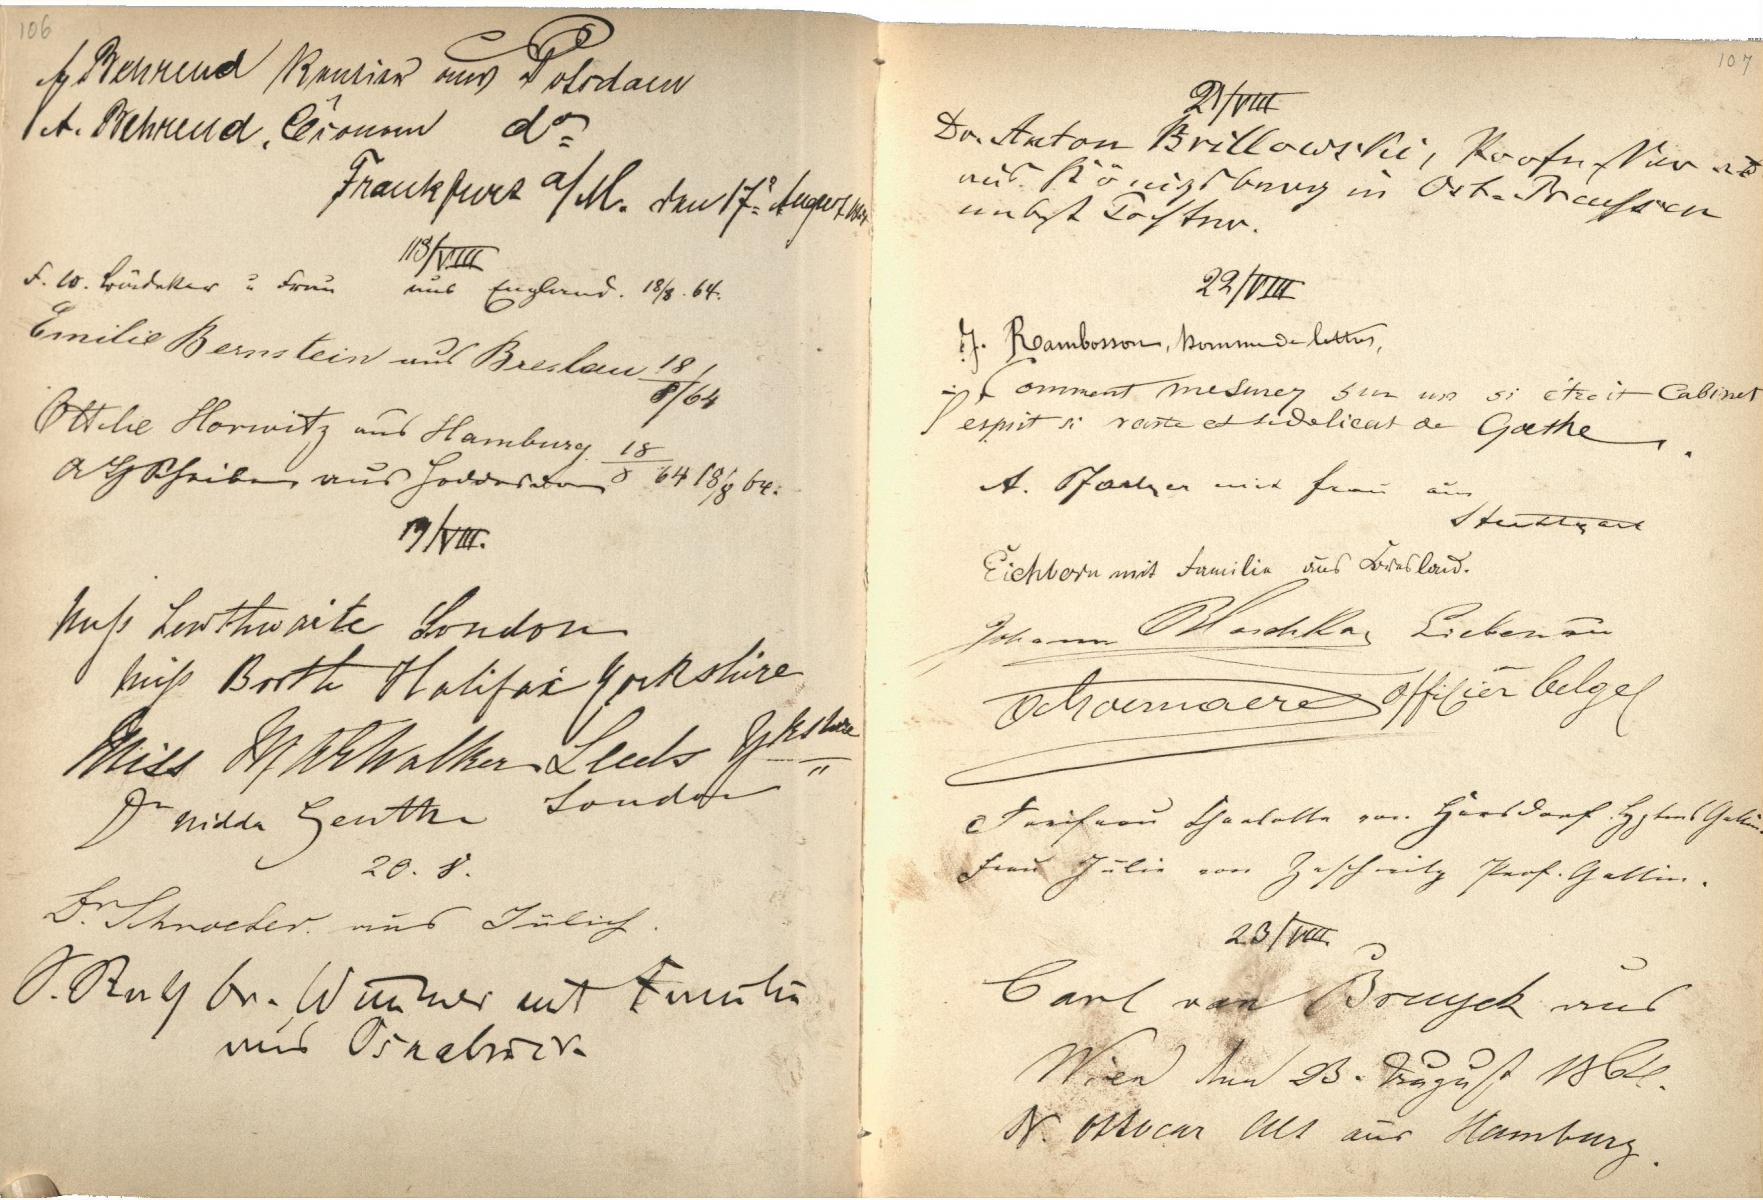 106
Behrend Rentier aus Potsdam
A. Behrend, do
Frankfurt a/M. den 17ⁿ August
18/VIII
F. W. Bädeker u Frau aus England. 18/8. 64.
Emilie Bernstein aus Breslau 18/8/64
Horwitz aus Hamburg 18/8 64
aus 18/8 64.
19/VIII.
Miss Lewthwaite London
Miss Booth Halifax Yorkshire
Miss Walker Leeds Yorkshire
Dr London
20. 8.
Dr Schroeder aus Jülich.
mit Familie
aus Osnabrück
107
21/VIII
Dr. Anton Brillowski, Professor
aus Königsberg in Ost-Preussen
nebst Tochter.
22/VIII
J. Rambosson, homme de lettres,
Comment mesurer sur un si étroit Cabinet
l'esprit si vaste et si delicat de Goethe.
A. mit Frau aus
Stuttgart
Eichborn mit Familie aus Breslau.
Johann Liebenau
Offizier belge
Freifrau Charlotte von
Frau Julie von Zeschwitz
23/VIII
Carl van Bruyck aus
Wien den 23. August 1864.
Alt aus Hamburg.